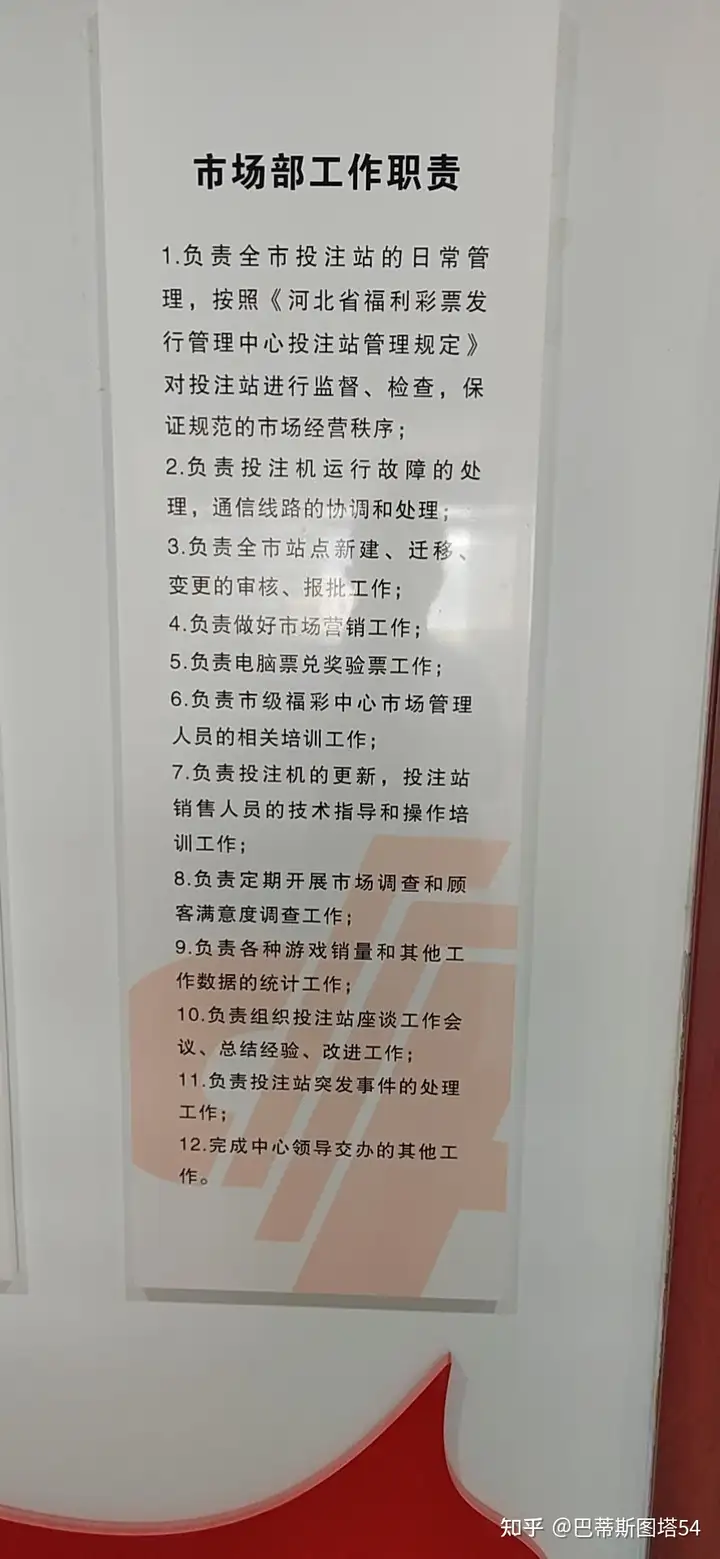 市场部工作职责
1.负责全市投注站的日常管
理，按照《河北省福利彩票发
行管理中心投注站管理规定》
对投注站进行监督、检查，保
证规范的市场经营秩序；
2.负责投注机运行故障的处
理，通信线路的协调和处理；
3.负责全市站点新建、迁移、
变更的审核、报批工作；
4.负责做好市场营销工作；
5.负责电脑票兑奖验票工作；
6.负责市级福彩中心市场管理
人员的相关培训工作；
7.负责投注机的更新，投注站
销售人员的技术指导和操作培
训工作；
8.负责定期开展市场调查和顾
客满意度调查工作；
9.负责各种游戏销量和其他工
作数据的统计工作；
10.负责组织投注站座谈工作会
议、总结经验、改进工作；
11.负责投注站突发事件的处理
工作；
12.完成中心领导交办的其他工
作。
知乎 @巴蒂斯图塔54